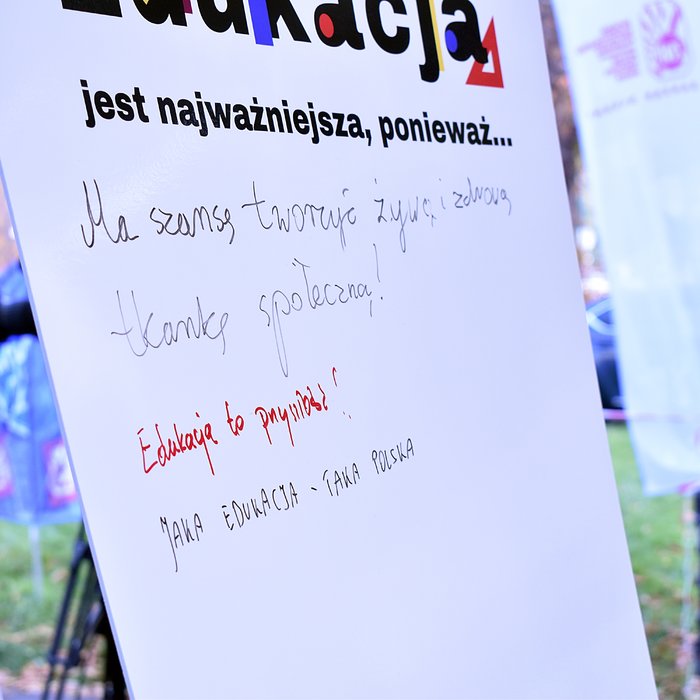 Edukacja
jest najważniejsza, ponieważ...
Ma szansę tworzyć żywą i zdrową
tkankę społeczną!
Edukacja to przyszłość!
JAKA EDUKACJA - TAKA POLSKA